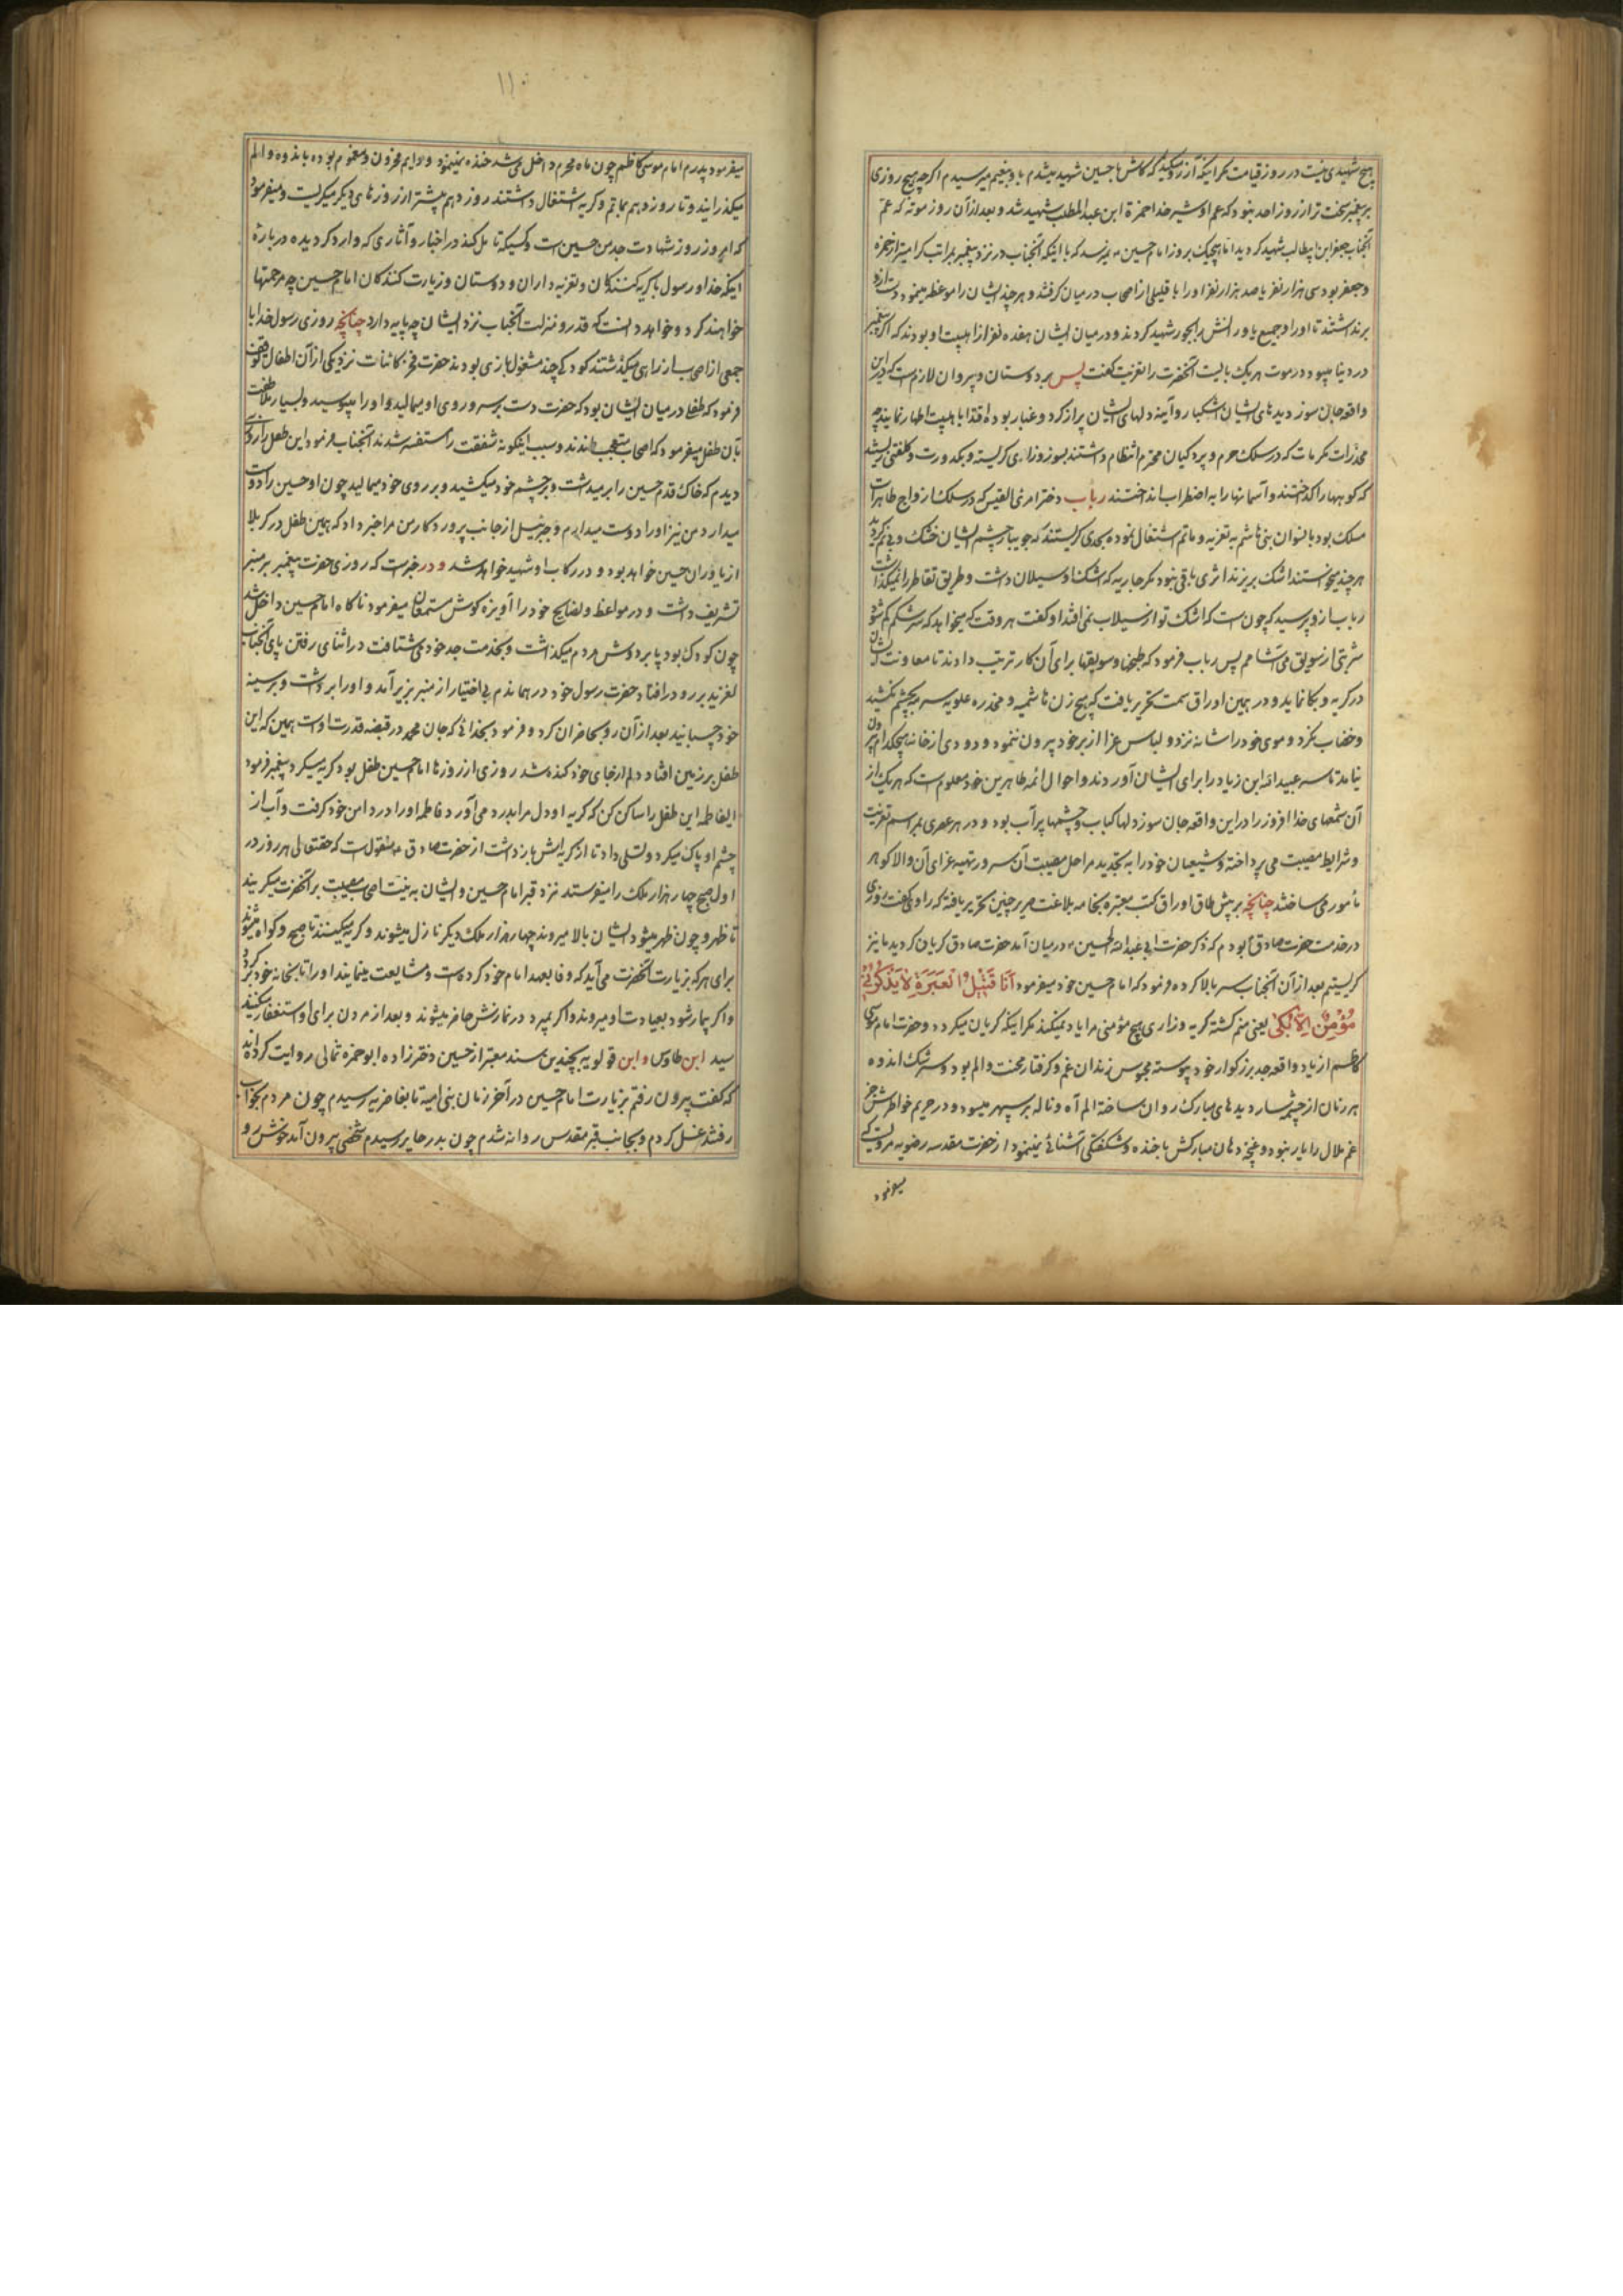 هیچ شهیدی نیست در روز قیامت مکر اینکه آرزو میکند که کاش با حسین شهید میشدم با و بنعیم میرسیدم اکرچه هیچ روزی
بر پیغمبر سخت تر از روز احد نبود که عم او شیر خدا حمزة ابن عبد المطلب شهید شد و بعد از آن روز موته که عم
آنجناب جعفر ابن ابیطالب شهید کردید اما هیچیک بروز امام حسین نمیرسد که با اینکه آنجناب در نزد پیغمبر بمراتب کرامیتر از حمزه
و جعفر بود سی هزار نفر یا صد هزار نفر او را با قلیلی از اصحاب در میان کرفتند و هر چند ایشان را موعظه مینمود دست از او
برنداشتند تا او را و جمیع یاورانش را بجور شهید کردند و در میان ایشان هفده نفر از اهلبیت او بودند که اکر پیغمبر
در دنیا میبود در موت هر یک بایست آنحضرت را تعزیت کفت پس بر دوستان و پیروان لازمست که در این
واقعه جان سوز دیدهای ایشان اشکبار و آینه دلهای ایشان پر از کرد و غبار بوده اقتدا باهلبیت اطهار نمایند چه
مخدرات مکرمات که در سلک حرم و پردکیان محترم انتظام داشتند بسوز و زاری کریسته و بکدورت و کلفتی زیسته
که کوهها را کداختند و آسمانها را به اضطراب انداختند رباب دختر امرئ القیس که در سلک ازواج طاهرات
منسلک بود با نسوان بنی هاشم به تعزیه و ماتم اشتغال نموده بحدی کریستند که جویبار چشم ایشان خشک و بی نم کردید
هر چند میخواستند اشک بریزند اثری باقی نبود مکر جاریه که اشک او سیلان داشت و طریق تقاطر را نمیکذاشت
رباب از او پرسید که چون است که اشک تو از سیلاب نمی افتد او کفت هر وقت که میخواهد که سرشکم کم شود
شربتی از سویق می آشامم پس رباب فرمود که طبخها و سویقها برای آن کار ترتیب دادند تا معاونت ایشان
در کریه و بکا نماید و در همین اوراق سمت تحریر یافت که هیچ زن هاشمیه و مخدره علویه سرمه بچشم نکشید
و خضاب نکرد و موی خود را شانه نزد و لباس عزا از بر خود بیرون ننمود و دودی از خانه هیچکدام بیرون
نیامد تا سر عبید الله ابن زیاد را برای ایشان آوردند و احوال ائمه طاهرین خود معلوم است که هر یک از
آن شمعهای خدا افروز را در این واقعه جان سوز دلها کباب و چشمها پر آب بود و در هر عصری بمراسم تعزیت
و شرایط مصیبت می پرداخته و شیعیان خود را به تجدید مراحل مصیبت آن سرور و تهیه عزای آن والا کوهر
مأمور می ساختند چنانچه بر پیش طاق اوراق کتب معتبره بخامه بلاغت صریر چنین تحریر یافته که راوی کفت روزی
در خدمت حضرت صادق بودم که ذکر حضرت ابی عبد الله الحسین در میان آمد حضرت صادق کریان کردید ما نیز
کریستیم بعد از آن آنجناب سر بالا کرده فرمود که امام حسین خود میفرمود اَنَا قَتِیْلُ الْعَبَرَةِ لاٰ یَذْکُرُنِیْ
مُؤْمِنٌ اِلاّٰ بَکٰی یعنی منم کشته کریه و زاری هیچ مؤمنی مرا یاد نمیکند مکر اینکه کریان میکردد و حضرت امام موسی
کاظم از یاد واقعه جد بزرکوار خود پیوسته محبوس زندان غم و کرفتار محنت و الم بود و سرشک اندوه
هر زمان از چشمه سار دیدهای مبارک روان ساخته الم آه و ناله بر سپهر میسود و در حریم خاطرش جز
غم ملال را بار نبود و غنچه دهان مبارکش با خنده و شکفتکی آشنائی نمینمود از حضرت مقدسه رضویه مرویست که
میفرمود
۱۱۰
میفرمود پدرم امام موسی کاظم چون ماه محرم داخل می شد خنده نمینمود و دایم محزون و مغموم بوده باندوه و الم
میکذرانید و تا روز دهم بماتم و کریه اشتغال داشتند روز دهم بیشتر از روزهای دیکر میکریست و میفرمود
که امروز روز شهادت جد من حسین است و کسیکه تامل کند در اخبار و آثاری که وارد کردیده در باره
اینکه خدا و رسول با کریه کنندکان و تعزیه داران و دوستان و زیارت کنندکان امام حسین چه مرحمتها
خواهند کرد و خواهد دانست که قدر و منزلت آنجناب نزد ایشان چه پایه دارد چنانچه روزی رسول خدا با
جمعی از اصحاب از راهی میکذشتند کودکی چند مشغول بازی بودند حضرت فخر کائنات نزد یکی از آن اطفال توقف
فرمود که طفلی در میان ایشان بود که حضرت دست بر سر و روی او میمالید و او را میبوسید و بسیار ملاطفت
بآن طفل میفرمود که اصحاب متعجب ماندند و سبب اینکونه شفقت را مستفسر شدند آنجناب فرمود این طفل را روزی
دیدم که خاک قدم حسین را بر میداشت و بر چشم خود میکشید و بر روی خود میمالید چون او حسین را دوست
میدارد من نیز او را دوست میدارم و جبرئیل از جانب پروردکار من مرا خبر داد که همین طفل در کربلا
از یاوران حسین خواهد بود و در رکاب او شهید خواهد شد و در خبر است که روزی حضرت پیغمبر بر منبر
تشریف داشت و در مواعظ و نصایح خود را آویزه کوش مستمعان میفرمود ناکاه امام حسین داخل شد
چون کودک بود پا بر دوش مردم میکذاشت و بخدمت جد خود می شتافت در اثنای رفتن پای آنجناب
لغزید بر رو در افتاد حضرت رسول خود در هماندم بی اختیار از منبر بزیر آمد و او را برداشت و بر سینه
خود چسبانید بعد از آن رو بحاضران کرد و فرمود بخدائی که جان محمد در قبضه قدرت اوست همین که این
طفل بر زمین افتاد دلم از جای خود کنده شد روزی از روزها امام حسین طفل بود کریه میکرد پیغمبر فرمود
ایفاطمه این طفل را ساکن کن که کریه او دل مرا بدرد می آورد فاطمه او را در دامن خود کرفت و آب از
چشم او پاک میکرد و تسلی داد تا از کریه اش باز داشت از حضرت صادق منقول است که حقتعالی هر روز در
اول صبح چهار هزار ملک را میفرستد نزد قبر امام حسین و ایشان به نیت اصحاب مصیبت بر آنحضرت میکریند
تا ظهر و چون ظهر میشود ایشان بالا میروند چهار هزار ملک دیکر نازل میشوند و کریه میکنند تا صبح و کواه میشوند
برای هر که بزیارت آنحضرت می آید که وفا بعهد امام خود کرده است و مشایعت مینمایند او را تا بخانه خود برکردد
و اکر بیمار شود بعیادت او میروند و اکر بمیرد در نمازش حاضر میشوند و بعد از مردن برای او استغفار میکنند
سید ابن طاوس و ابن قولویه بچندین سند معتبر از حسین دختر زاده ابو حمزه ثمالی روایت کرده اند
که کفت بیرون رفتم بزیارت امام حسین در آخر زمان بنی امیه تا بغاضریه رسیدم چون مردم بخواب
رفتند غسل کردم و بجانب قبر مقدس روانه شدم چون بدر حایر رسیدم شخصی بیرون آمد خوش رو